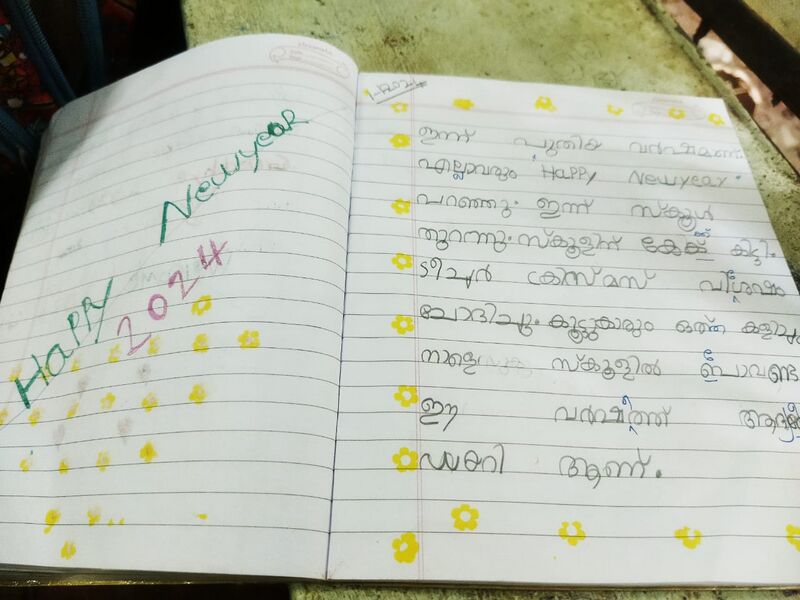 Happy New year
2024
1-1-2024
ഇന്ന് പുതിയ വർഷമാണ്
എല്ലാവരും Happy Newyear
പറഞ്ഞു. ഇന്ന് സ്കൂൾ
തുറന്നു. സ്കൂളിന്ന് കേക്ക് കിട്ടി.
ടീച്ചർ ക്രിസ്മസ് വിശേഷം
ചോദിച്ചു. കൂട്ടുകാരും ഒത്ത് കളിച്ചു
നാളെ സ്കൂളിൽ പോവണ്ട
ഈ വർഷത്തെ ആദ്യ
ഡയറി ആണ്.